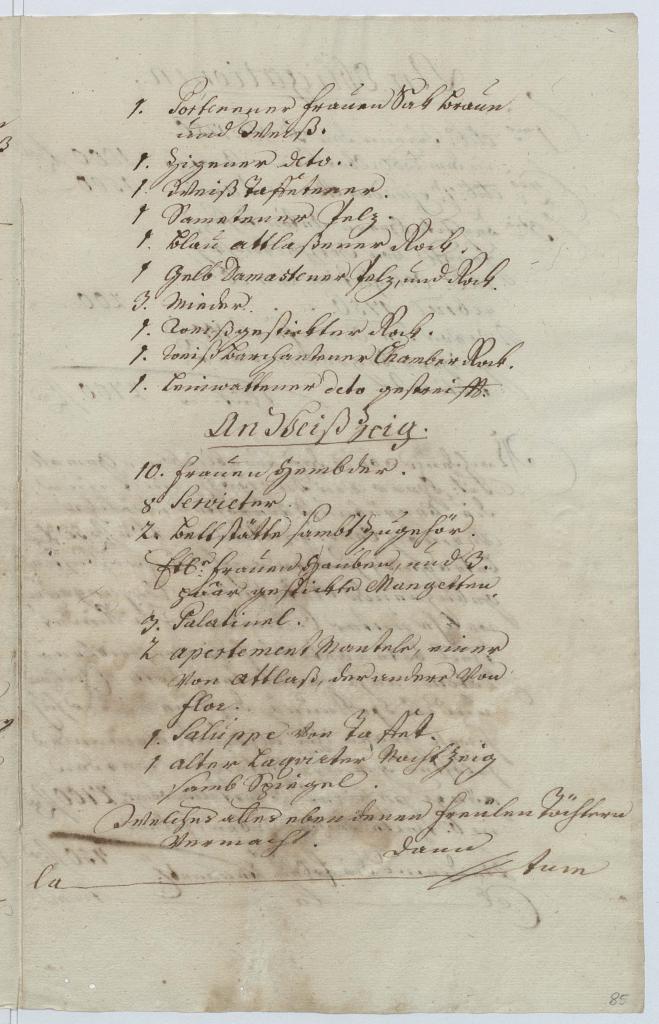 1. Frauen Sak braun
und Weiß.
1. Zizener deto.
1. Weiß Taffetener.
1 Sametener Pelz.
1. Blau attlaßener Rock.
1 Gelb Damastener Pelz, und Rock.
3. Mieder.
1. Weißgestickter Rock.
1. Weiß barchantener Chamber Rock.
1. Leinwattener deto gestreifft.
An Weißzeig.
10. Frauen Hembder.
8 Servieter.
2. Bettstätte sambt Zugehör.
Frauen Hauben, und 3.
paar gestickte Mangetten.
3. Palatinel.
2 apertement Mantele, einer
von attlaß, der andere von
flor.
1. Saluppe von Taffet.
1 alter Laqvierter Nachtzeig
samb Spiegel.
Welches alles eben denen Freülen Töchtern
Vermacht. Dann
La tum
85